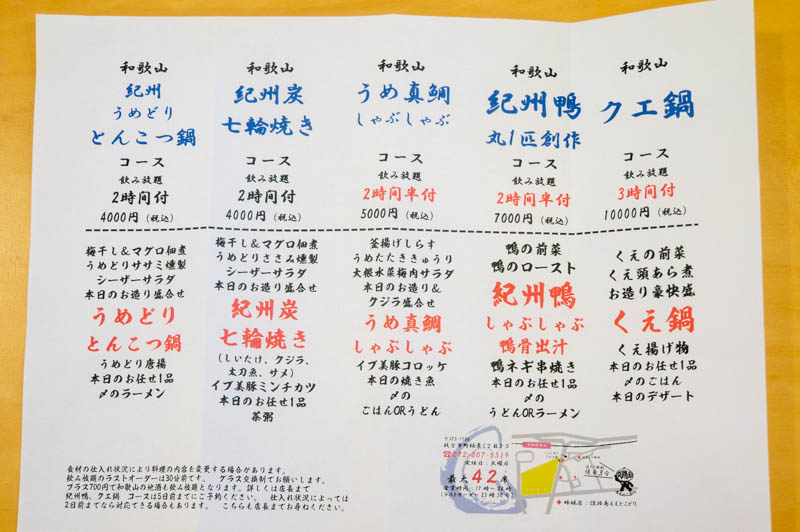 和歌山
紀州
うめどり
とんこつ鍋
コース
飲み放題
2時間付
4000円(税込)
梅干し&マグロ佃煮
うめどりササミ燻製
シーザーサラダ
本日のお造り盛合せ
うめどり
とんこつ鍋
うめどり唐揚
本日のお任せ1品
〆のラーメン
和歌山
紀州炭
七輪焼き
コース
飲み放題
2時間付
4000円(税込)
梅干し&マグロ佃煮
うめどりささみ燻製
シーザーサラダ
本日のお造り盛合せ
紀州炭
七輪焼き
(しいたけ、クジラ、
太刀魚、サメ)
イブ美豚ミンチカツ
本日のお任せ1品
茶粥
和歌山
うめ真鯛
しゃぶしゃぶ
コース
飲み放題
2時間半付
5000円(税込)
釜揚げしらす
うめたたききゅうり
大根水菜梅肉サラダ
本日のお造り&
クジラ盛合せ
うめ真鯛
しゃぶしゃぶ
イブ美豚コロッケ
本日の焼き魚
〆の
ごはんORうどん
和歌山
紀州鴨
丸1匹創作
コース
飲み放題
2時間半付
7000円(税込)
鴨の前菜
鴨のロースト
紀州鴨
しゃぶしゃぶ
鴨骨出汁
鴨ネギ串焼き
本日のお任せ1品
〆の
うどんORラーメン
和歌山
クエ鍋
コース
飲み放題
3時間付
10000円(税込)
くえの前菜
くえ頭あら煮
お造り豪快盛
くえ鍋
くえ揚げ物
本日のお任せ1品
〆のごはん
本日のデザート
食材の仕入れ状況により料理の内容を変更する場合があります。
飲み放題のラストオーダーは30分前です。 グラス交換制でお願いします。
プラス700円で和歌山の地酒も飲み放題となります。詳しくは店長まで
紀州鴨、クエ鍋 コースは5日前までにご予約ください。 仕入れ状況によっては
2日前までなら対応できる場合もあります。 こちらも店長までお尋ねください。
☎072-807-5519
定休日:火曜日
最大42席
営業時間:17時〜24時
(ラストオーダー23時30分)